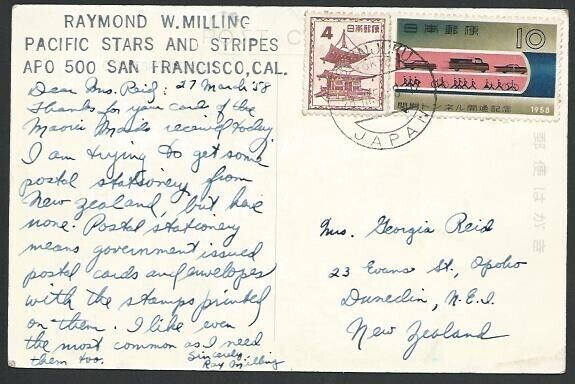 RAYMOND W. MILLING
PACIFIC STARS AND STRIPES
APO 500 SAN FRANCISCO, CAL.
Dear Mrs. Reid: 27 March '58
Thanks for your card of the
Maori Maids received today.
I am trying to get some
postal stationery from
New Zealand, but have
none. Postal stationery
means government issued
postal cards and envelopes
with the stamps printed
on them. I like even
the most common as I need
them too. Sincerely,
Ray Milling
4
日本郵便
日本郵便
10
関門トンネル開通記念
1958
JAPAN
郵便はがき
Mrs. Georgia Reid
23 Evans St., Opoho
Dunedin, N.E.1.
New Zealand